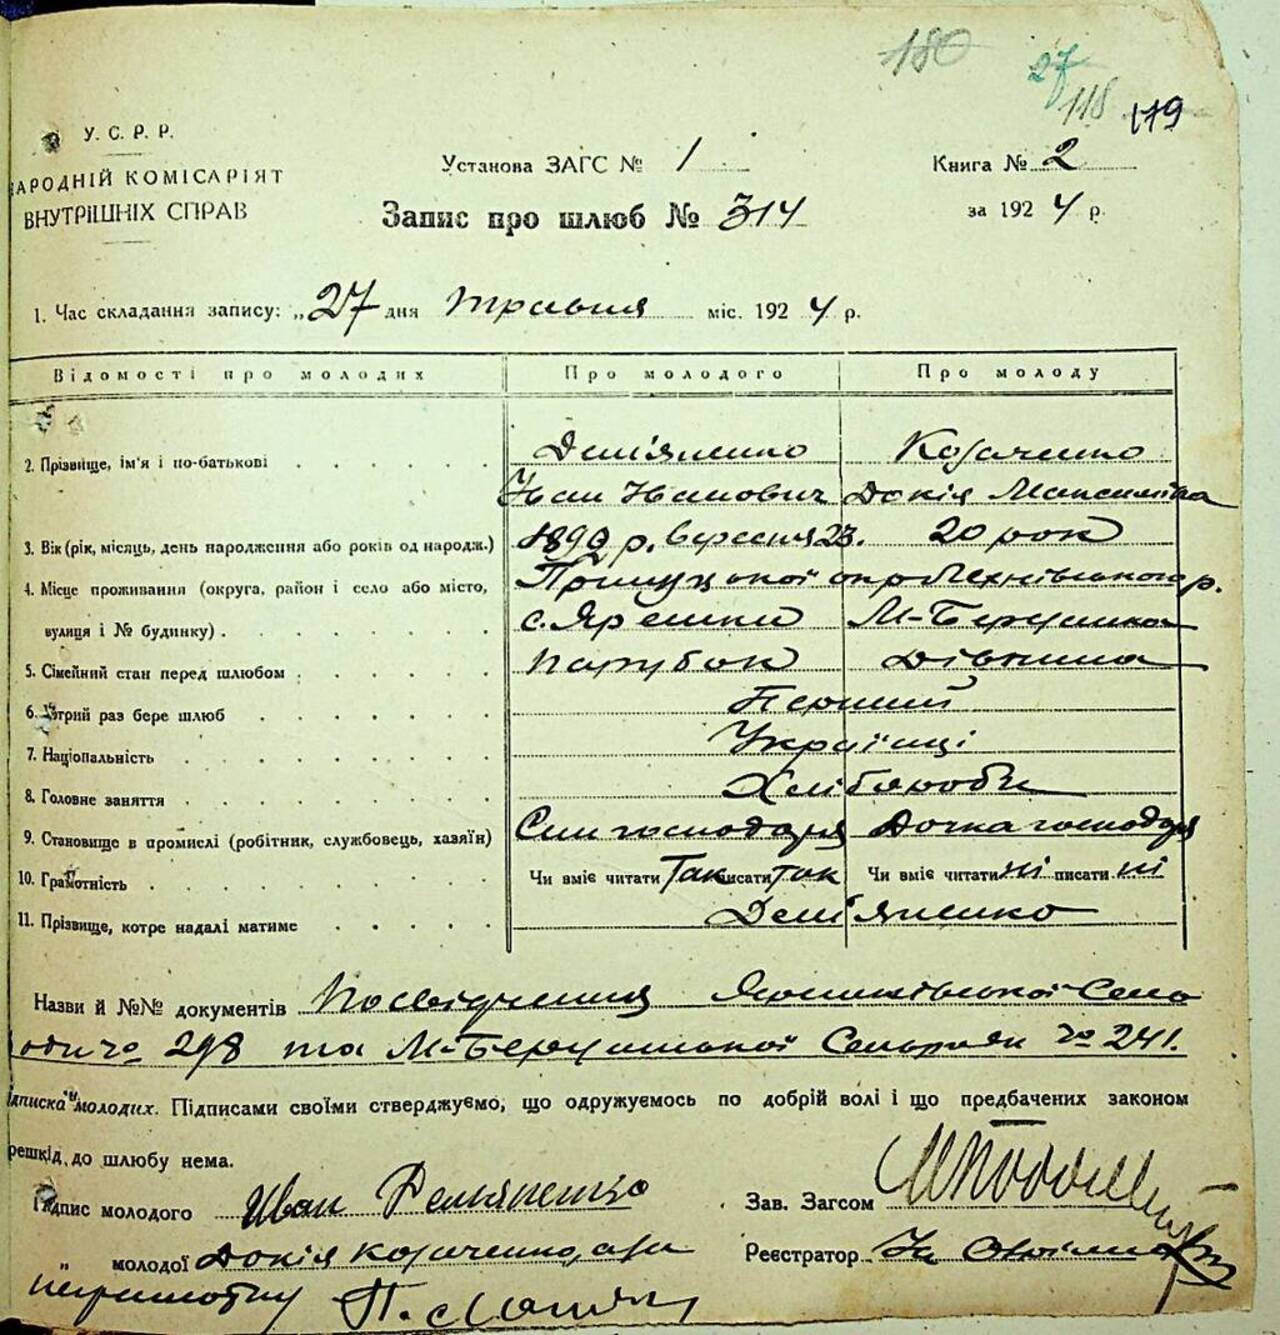 180
27
118 179
У. С. Р. Р.
НАРОДНІЙ КОМІСАРІЯТ
ВНУТРІШНІХ СПРАВ
Установа ЗАГС № 1
Книга № 2
Запис про шлюб № 314
за 1924 р.
1. Час складання запису: „27 дня травня міс. 1924 р.
Відомості про молодих Про молодого Про молоду
2. Прізвище, ім'я і по-батькові Дем'яненко Козаченко
Іван Іванович Докія Максимівна
3. Вік (рік, місяць, день народження або років од народж.) 1899 р. вересня 23. 20 рок
4. Місце проживання (округа, район і село або місто, Прилуцької окр. р.
вулиця і № будинку) с. М-Березанка
5. Сімейний стан перед шлюбом парубок дівчина
6. Котрий раз бере шлюб Перший
7. Національність Українці
8. Головне заняття Хлібороби
9. Становище в промислі (робітник, службовець, хазяїн) Син господаря Дочка господаря
10. Грамотність Чи вміє читати Так писати так Чи вміє читати ні писати ні
11. Прізвище, котре надалі матиме Дем'яненко
Назви й №№ документів Посвідчення
298 та Сельради № 241.
ідписка молодих. Підписами своїми стверджуємо, що одружуємось по добрій волі і що предбачених законом
решкід до шлюбу нема.
Підпис молодого Иван Демяненко
Зав. Загсом
„ молодої Докія Козаченко, а за
Реєстратор
неграмотну